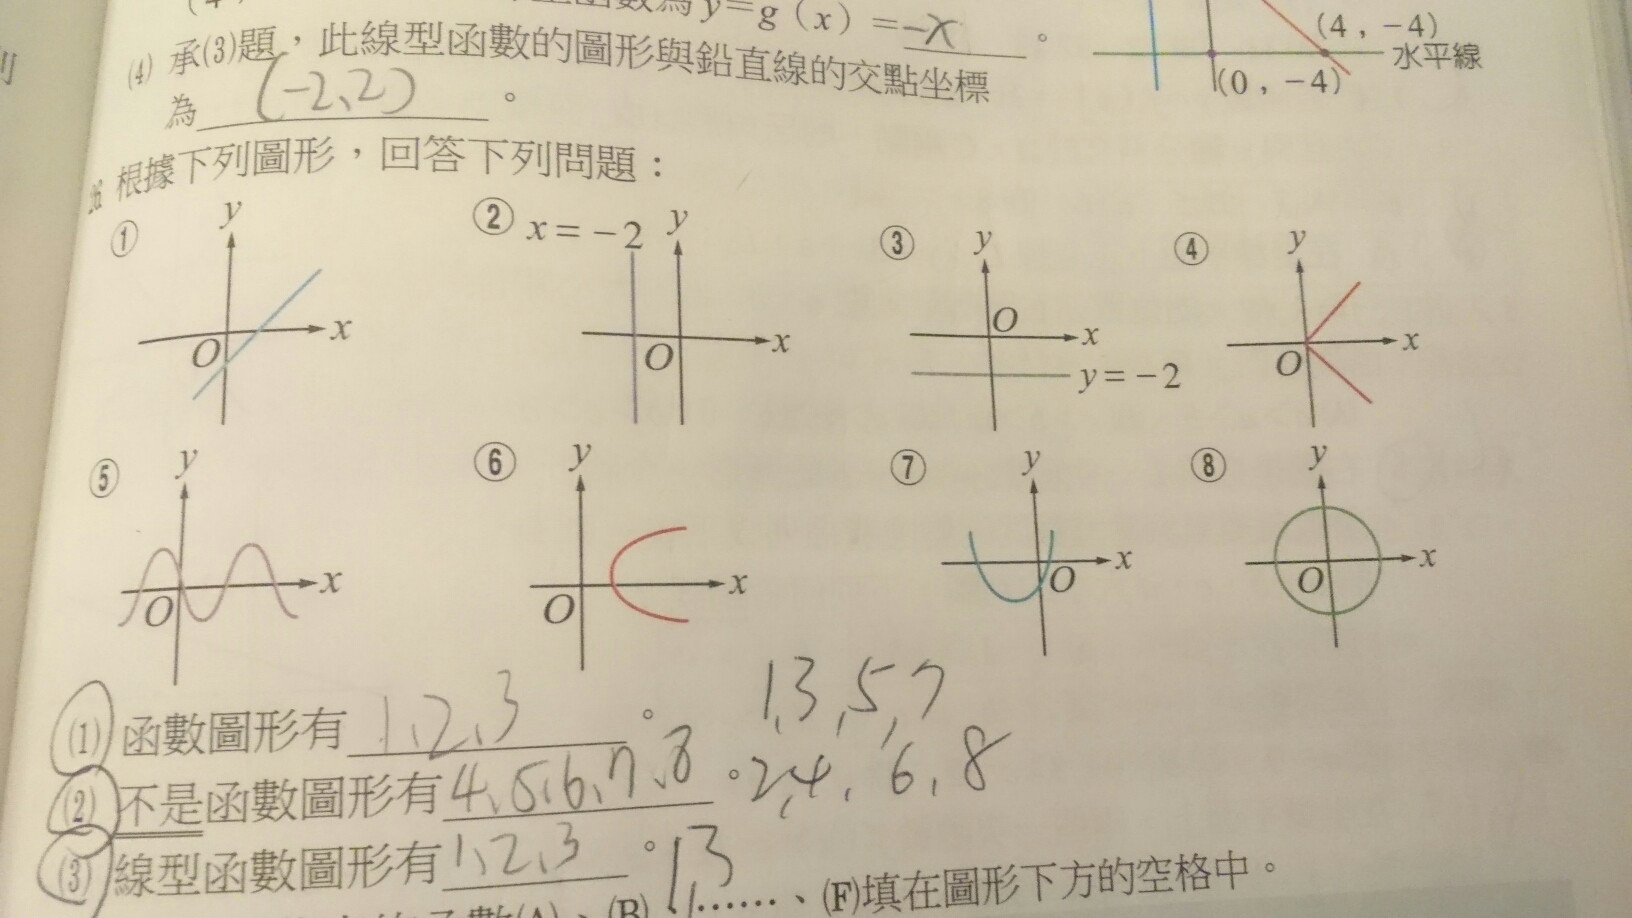 函數為y=g(x)=-x。
(4) 承(3)題，此線型函數的圖形與鉛直線的交點坐標
為(-2、2)。
(4，-4)
水平線
(0，-4)
根據下列圖形，回答下列問題：
① y x O
② x=-2 y x O
③ y O x y=-2
④ y x O
⑤ y x O
⑥ y x O
⑦ y x O
⑧ y x O
(1) 函數圖形有1、2、3。 1,3,5,7
(2) 不是函數圖形有4、5、6、7、8。2,4,6,8
(3) 線型函數圖形有1、2、3。1,3
函數(A)、(B)、……、(F)填在圖形下方的空格中。